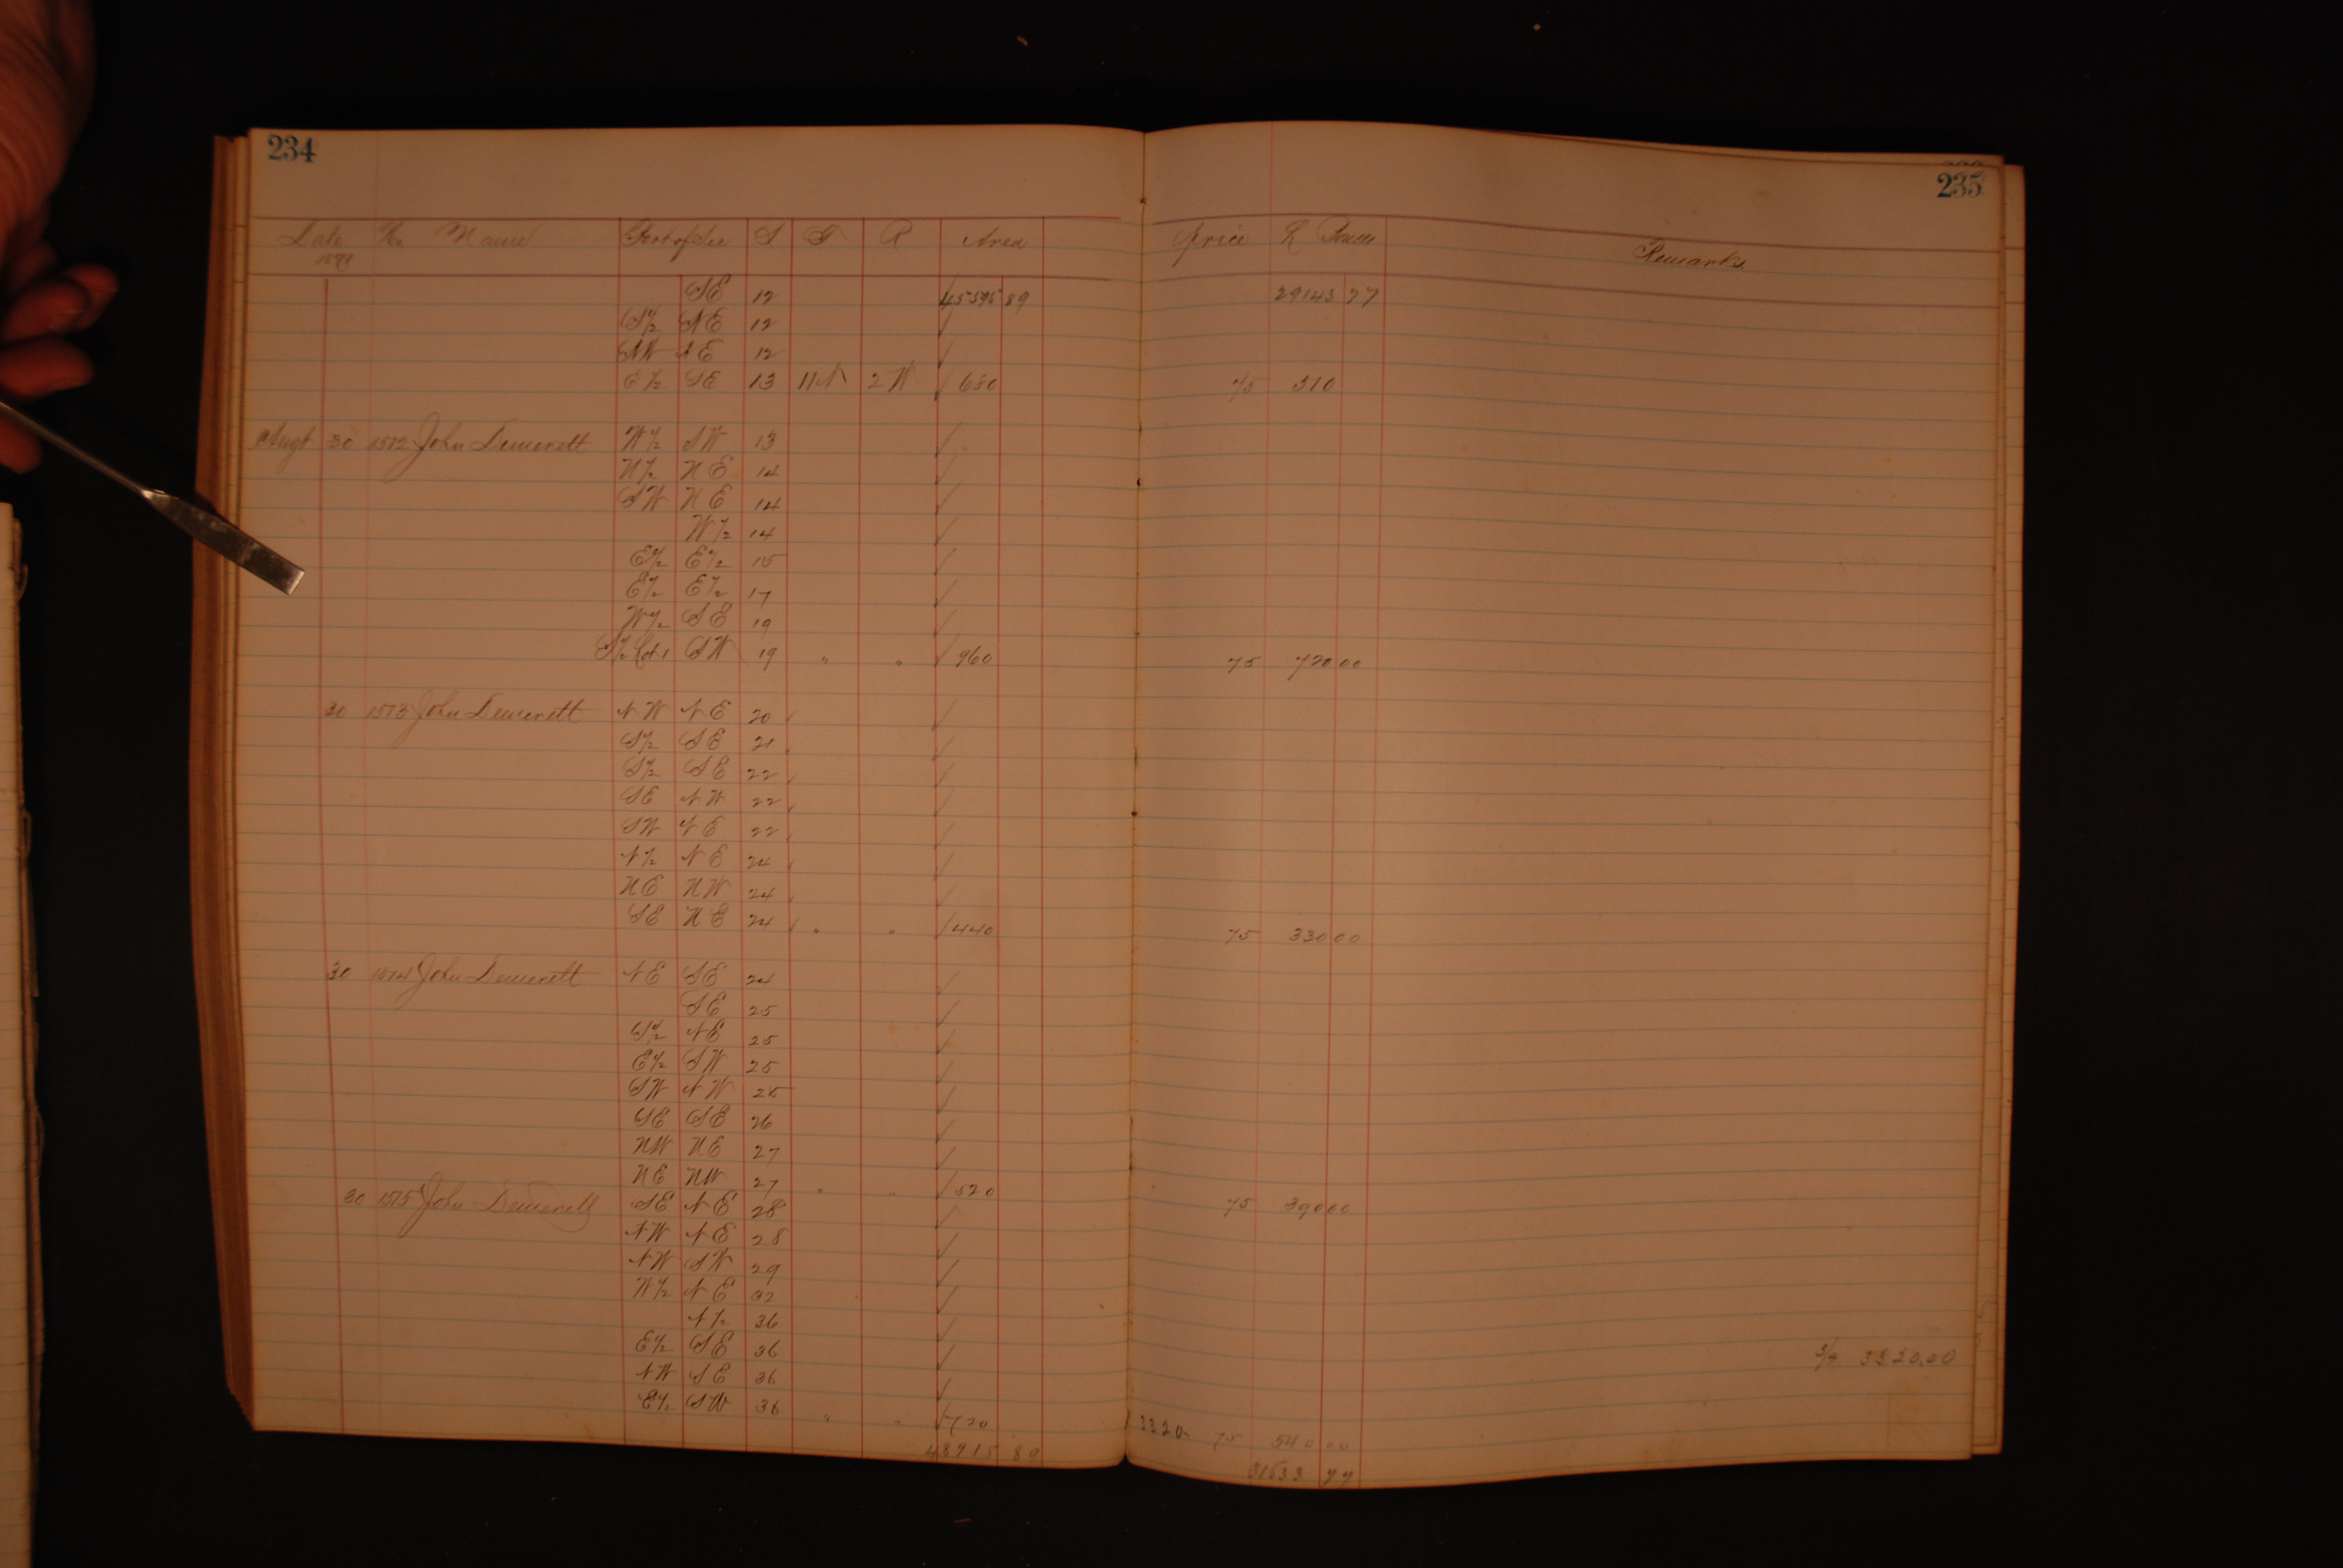 234
235
Date No Name Part of Sec S T R Area price R Remarks
SE 12 45595 89 29143 77
S½ NE 12
NW NE 12
E½ SE 13 11N 2W 680 75 510
Augt 30 1572 John Demerett W½ SW 13
N½ NE 14
SW NE 14
W½ 14
E½ E½ 15
E½ E½ 17
W½ SE 19
S½ Lot 1 SW 19 " " 960 75 720 00
30 1573 John Demerett NW NE 20
S½ SE 21
S½ SE 22
SE NW 22
SW NE 22
N½ NE 24
NE NW 24
SE NE 24 " " 440 75 330 00
30 1574 John Demerett NE SE 24
SE 25
S½ NE 25
E½ SW 25
SW NW 25
SE SE 26
NW NE 27
NE NW 27 " " 520 75 390 00
30 1575 John Demerett SE NE 28
NW NE 28
NW SW 29
W½ NE 32
N½ 36
E½ SE 36
3320.00
NW SE 36
E½ SW 36 " " 720 3320 75 540 00
48915 89 31633 77